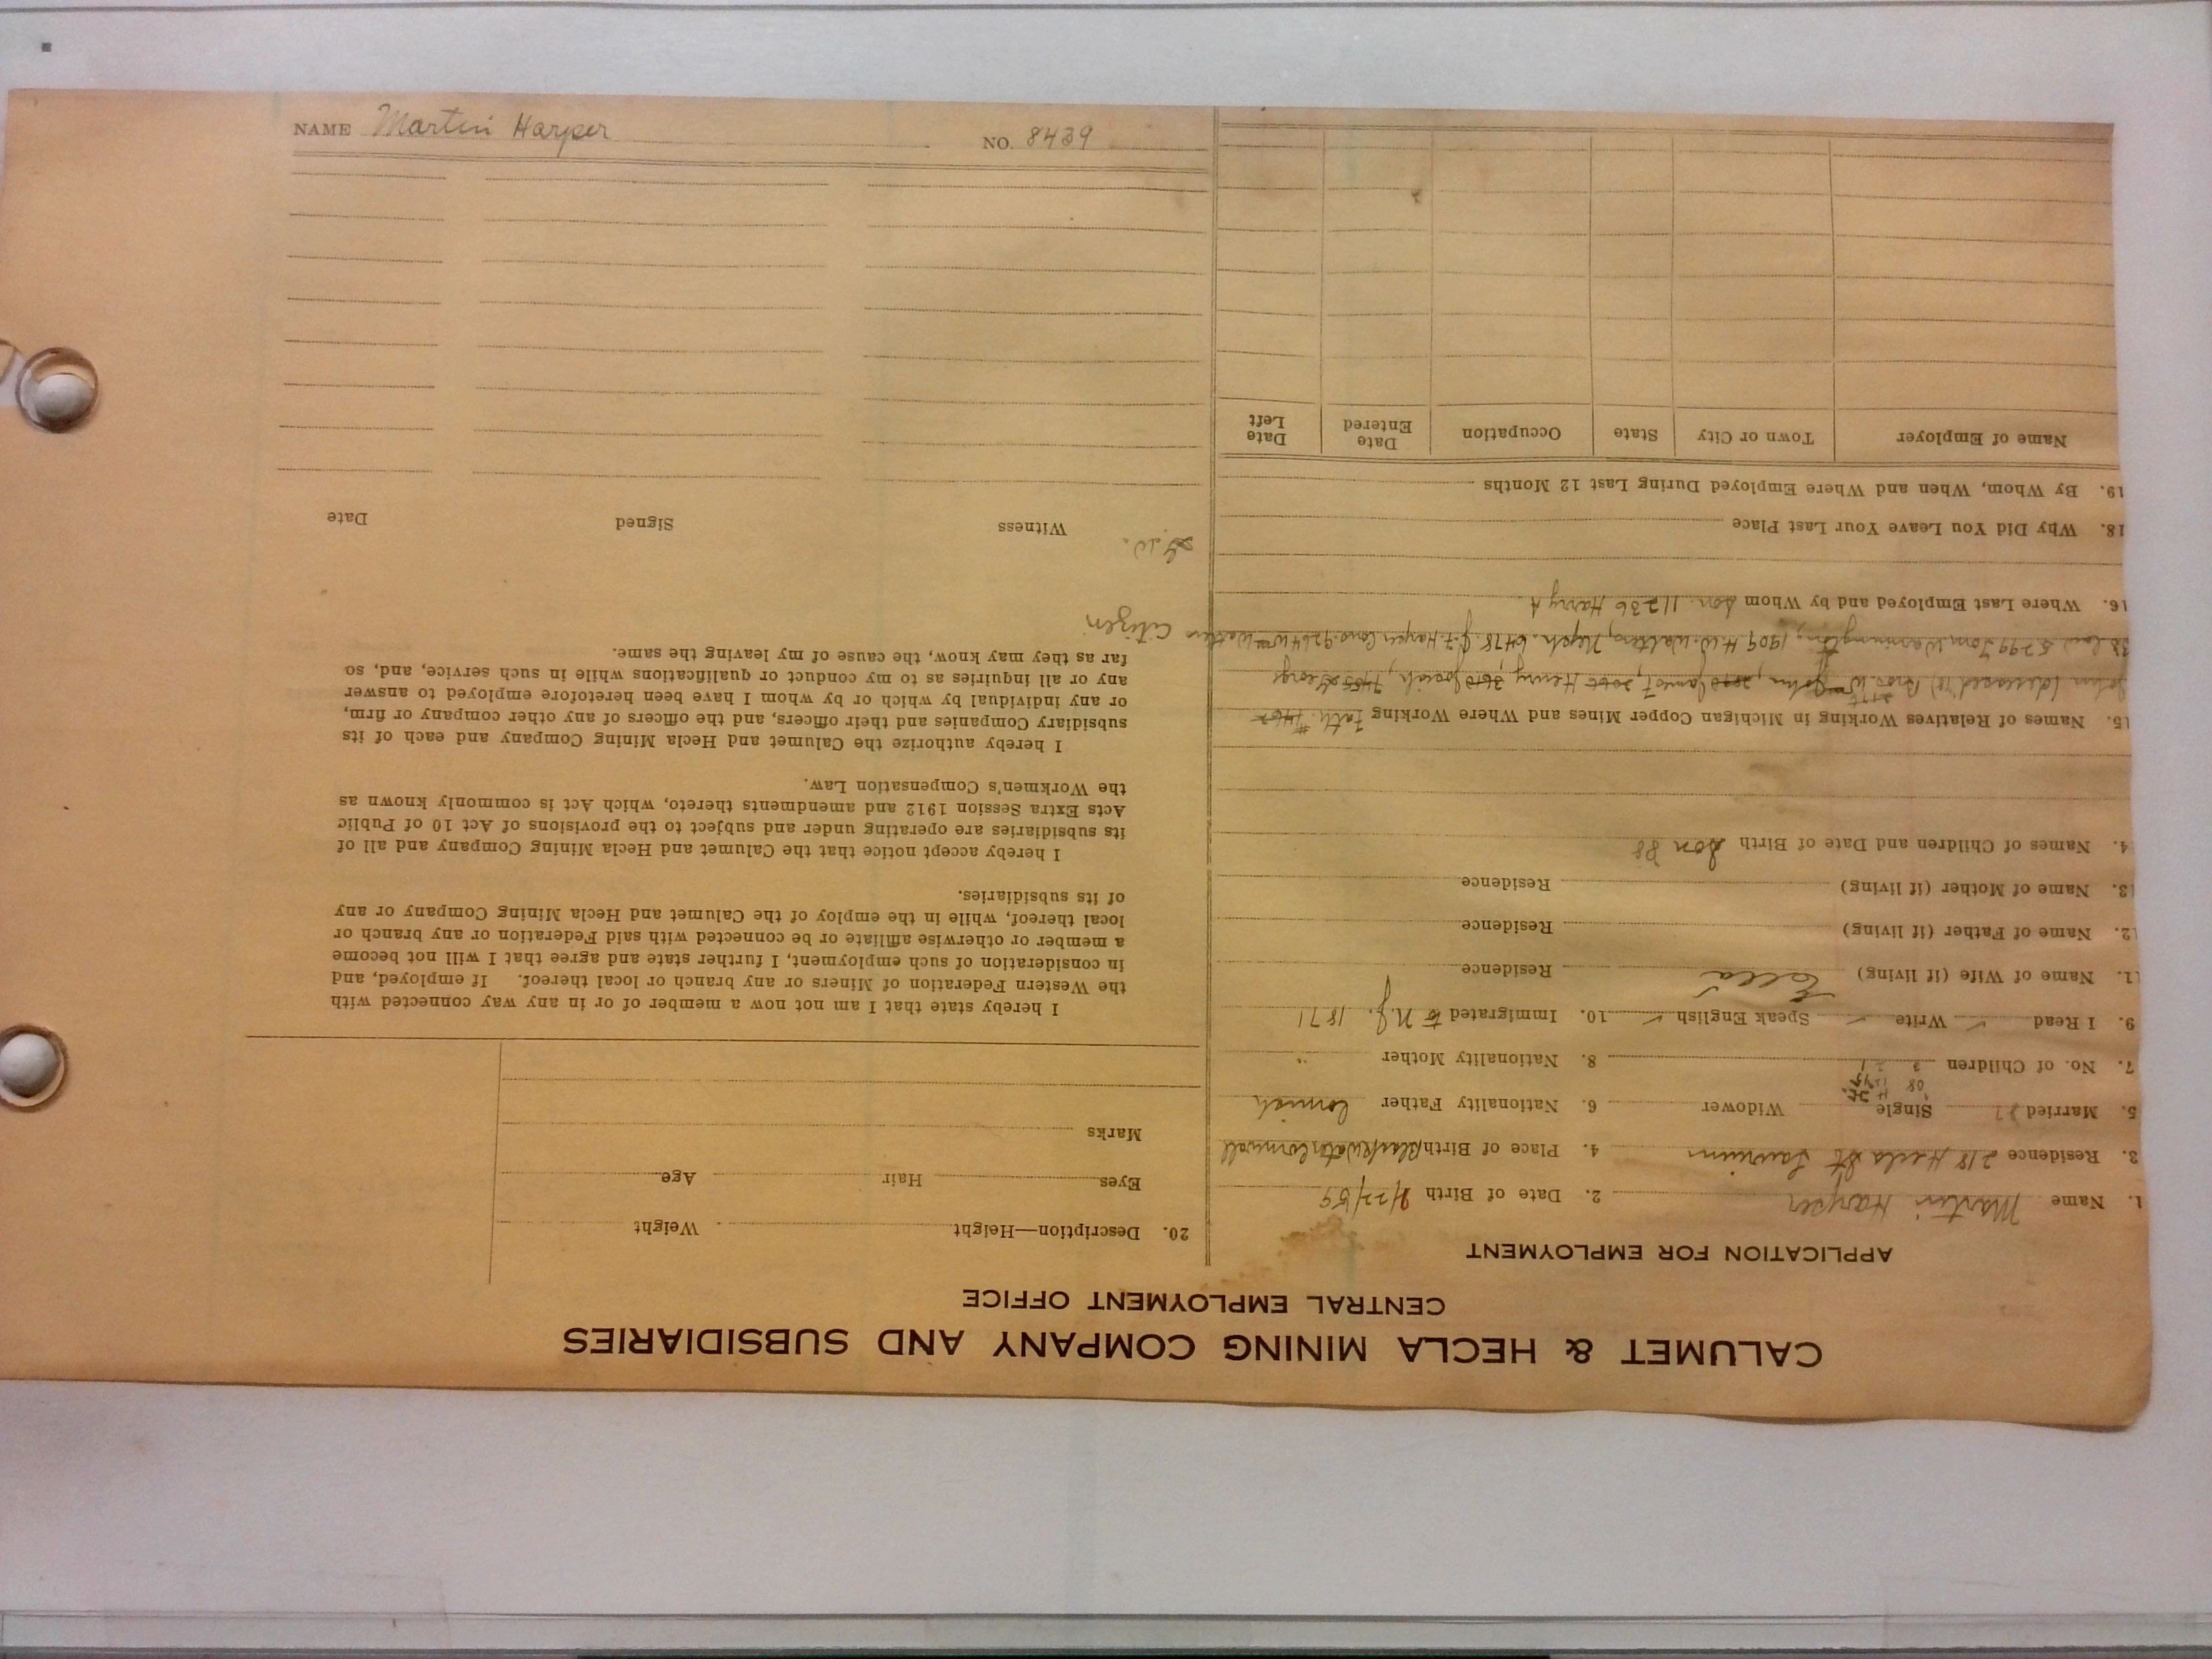 CALUMET & HECLA MINING COMPANY AND SUBSIDIARIES
CENTRAL EMPLOYMENT OFFICE
APPLICATION FOR EMPLOYMENT
1. Name Martin Harper 2. Date of Birth /22/59
3. Residence 218 Hecla St Laurium 4. Place of Birth Blackwater Cornwall
5. Married Single Widower 6. Nationality Father Cornish
08
7. No. of Children 8. Nationality Mother "
9. I Read ✓ Write ✓ Speak English ✓ 10. Immigrated to N.J. 1871
11. Name of Wife (if living) Residence
12. Name of Father (if living) Residence
13. Name of Mother (if living) Residence
4. Names of Children and Date of Birth Son 88
15. Names of Relatives Working in Michigan Copper Mines and Where Working Fath.
John (deceased '18) Bros. Wm John, James T, Henry, 3610 Josiah, 7485 George
Law 5299 Tom Warmington, 1909 H.W. Walters, Neph. 6478 J.F. Harper Cous. 9264 Wm Watters Citizen
16. Where Last Employed and by Whom Son. 11236 Harry A
18. Why Did You Leave Your Last Place
19. By Whom, When and Where Employed During Last 12 Months
Name of Employer Town or City State Occupation Date Entered Date Left
20. Description—Height Weight
Eyes Hair Age
Marks
I hereby state that I am not now a member of or in any way connected with
the Western Federation of Miners or any branch or local thereof. If employed, and
in consideration of such employment, I further state and agree that I will not become
a member or otherwise affiliate or be connected with said Federation or any branch or
local thereof, while in the employ of the Calumet and Hecla Mining Company or any
of its subsidiaries.
I hereby accept notice that the Calumet and Hecla Mining Company and all of
its subsidiaries are operating under and subject to the provisions of Act 10 of Public
Acts Extra Session 1912 and amendments thereto, which Act is commonly known as
the Workmen's Compensation Law.
I hereby authorize the Calumet and Hecla Mining Company and each of its
subsidiary Companies and their officers, and the officers of any other company or firm,
or any individual by which or by whom I have been heretofore employed to answer
any or all inquiries as to my conduct or qualifications while in such service, and, so
far as they may know, the cause of my leaving the same.
Witness Signed Date
NAME Martin Harper NO. 8439